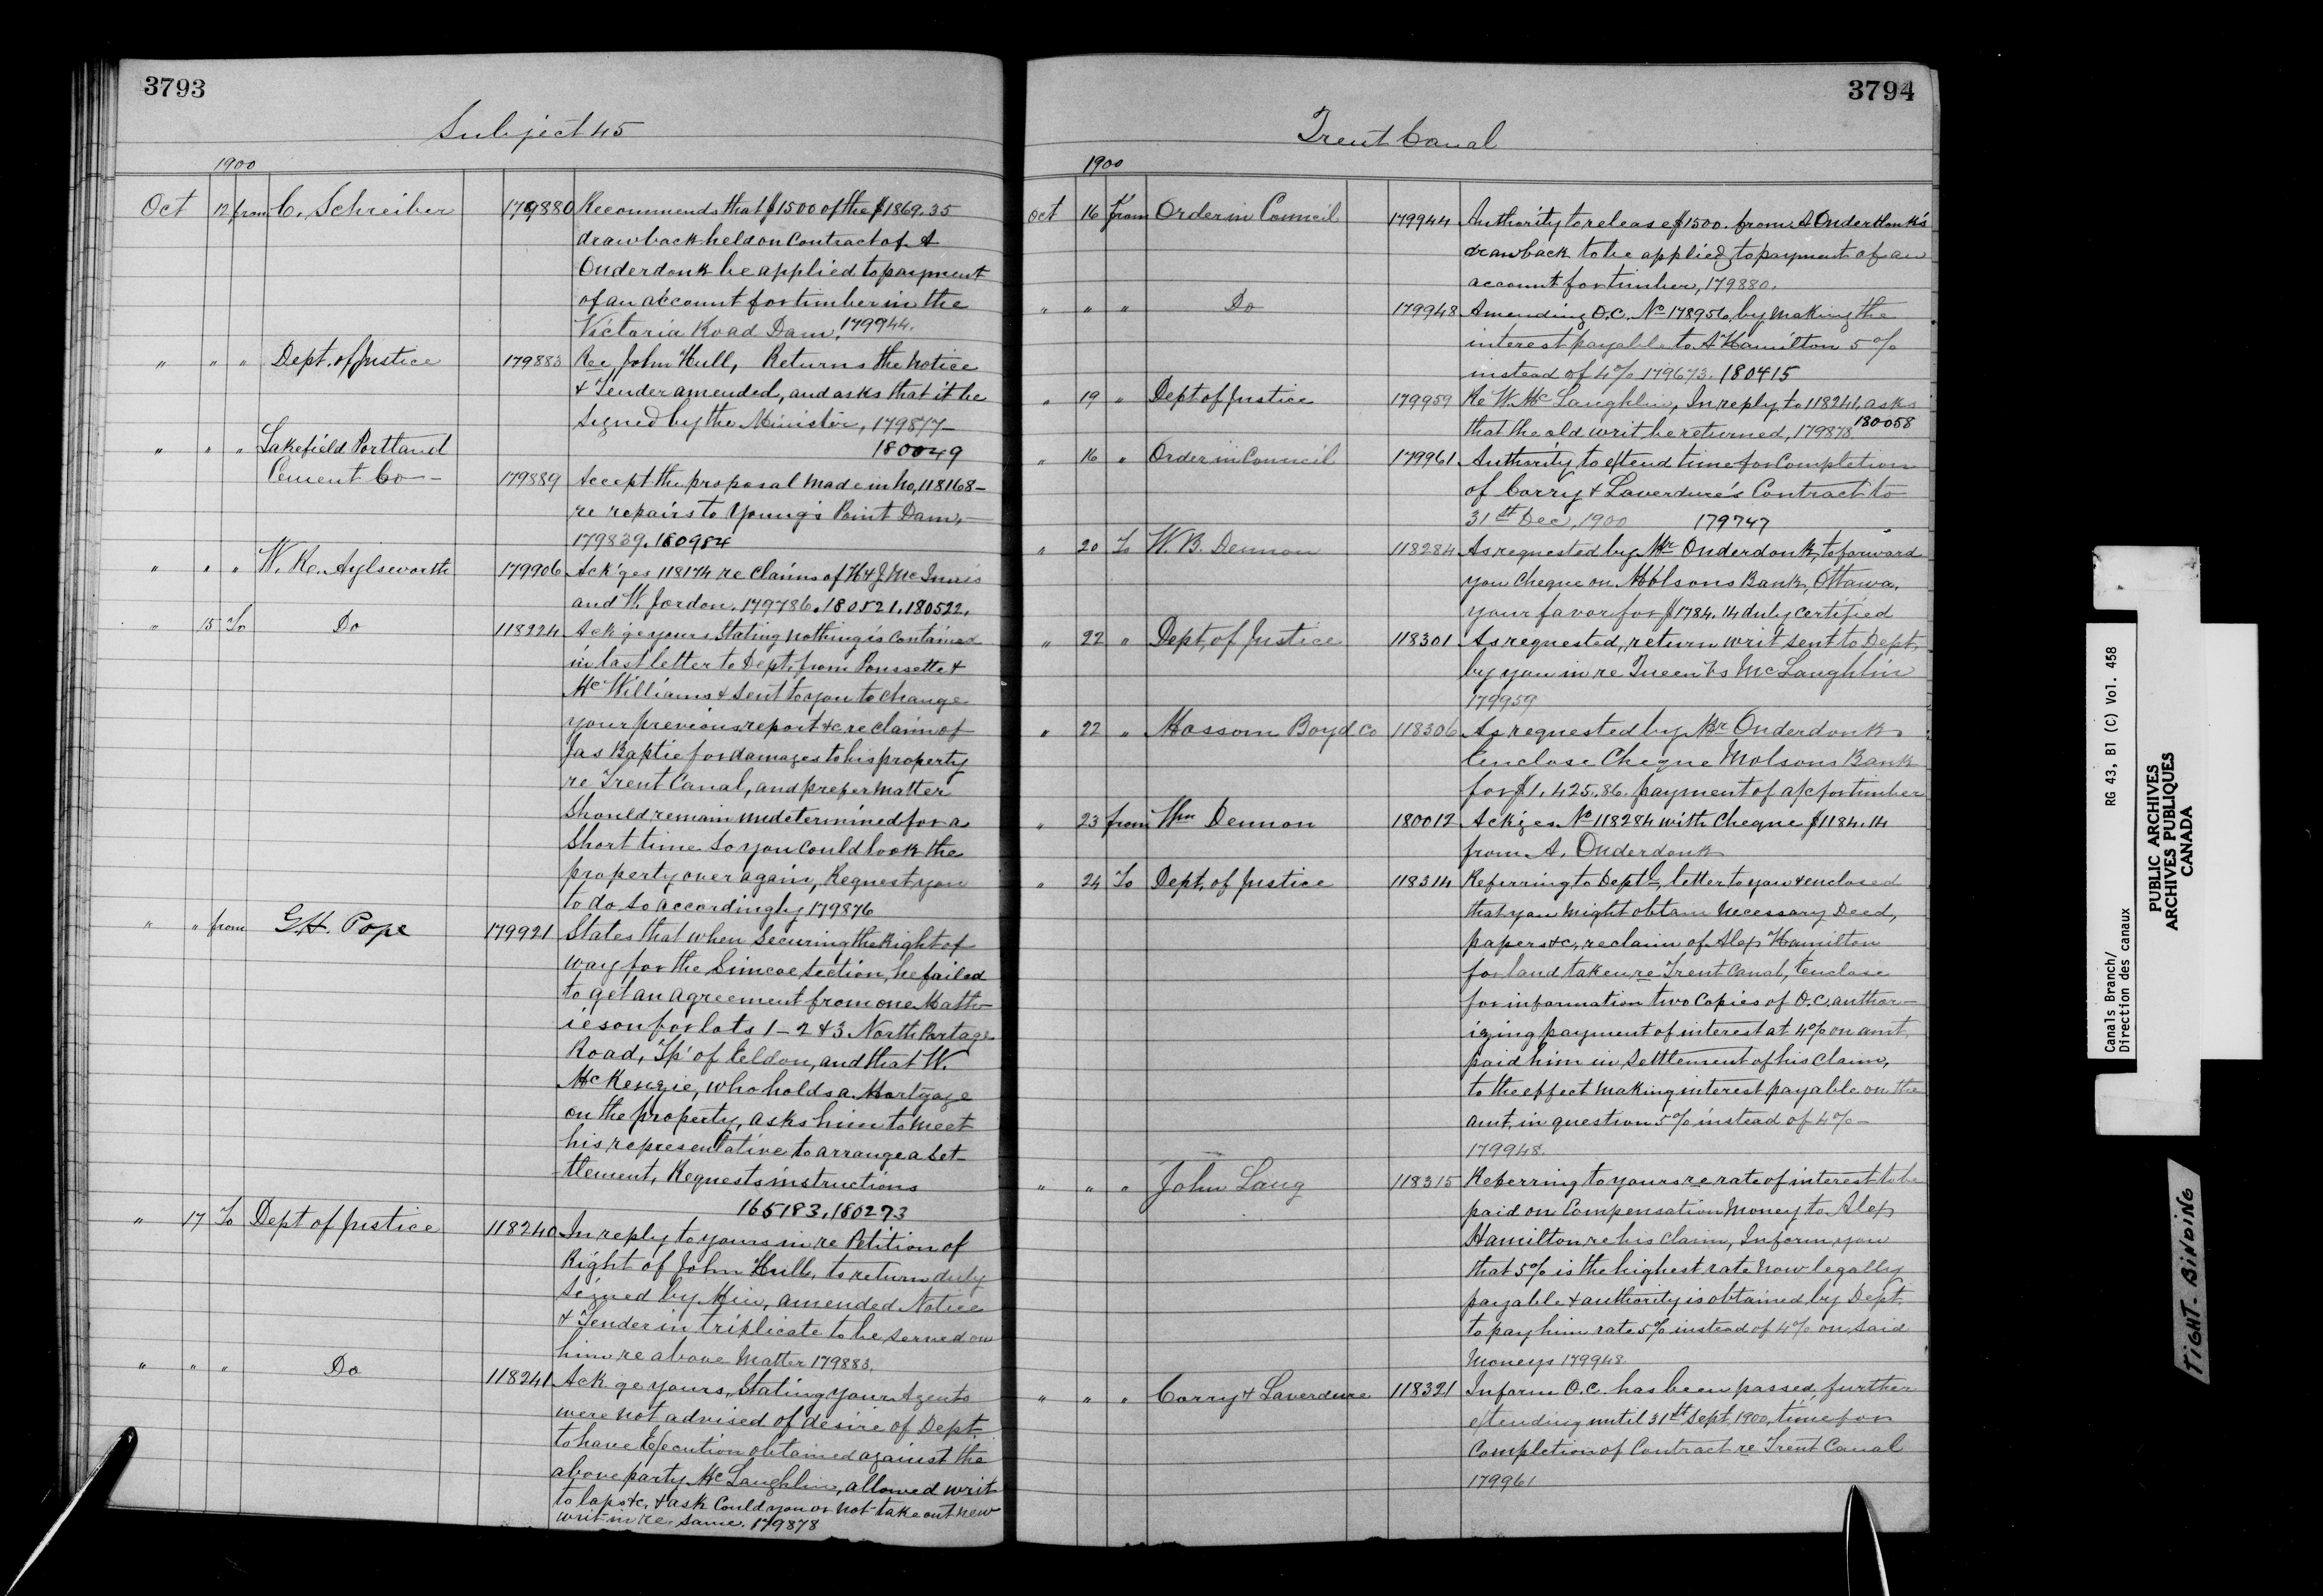 3793
Subject 45
1900
Oct 12 from C. Schreiber 179880 Recommends that $1500 of the $1869.35
drawback held on Contract of A
Onderdonk be applied to payment
of an account for timber in the
Victoria Road Dam, 179944.
" " " Dept. of Justice 179883 Re John Hull, Returns the notice
& Tender amended, and asks that it be
signed by the Minister, 179877–
180049
" " " Lakefield Portland
Cement Co – 179889 Accept the proposal made in No, 118168–
re repairs to Young's Point Dam, –
179839. 180984
" " " W. R. Aylsworth 179906 Ack'ges 118174 re claims of H & J McInnis
and W. Jordon. 179786. 180521. 180522.
" 15 To Do 118224 Ack'ge yours stating nothing is contained
in last letter to Dept. from Poussette &
McWilliams & sent to you to change
your previous report &c re claim of
Jas Baptie for damages to his property
re Trent Canal, and prefer matter
should remain undetermined for a
short time so you could look the
property over again, Request you
to do so accordingly 179876
" " from G.H. Pope 179921 States that when securing the Right of
way for the Simcoe section, he failed
to get an agreement from one Math–
ieson for lots 1–2 & 3 North Portage
Road, Tp' of Eldon, and that W.
McKenzie, who holds a Mortgage
on the property, asks him to meet
his representative to arrange a set–
tlement, Requests instructions
165183, 180273
" 17 To Dept of Justice 118240 In reply to yours in re Petition of
Right of John Hull, to return duly
signed by Min, amended Notice
& Tender in triplicate to be served on
him re above matter 179883.
" " " Do 118241 Ack ge yours, stating your Agents
were not advised of desire of Dept.
to have Execution obtained against the
above party McLaughlin, allowed writ
to laps &c, & ask could you or not take out new
writ in re same. 179878
3794
Trent Canal
1900
Oct 16 From Order in Council 179944 Authority to release $1500. from A Onderdonk's
drawback to be applied to payment of an
account for timber, 179880.
" " " Do 179948 Amending O.C. No 178956 by making the
interest payable to A Hamilton 5%
instead of 4% 179673. 180415
" 19 " Dept of Justice 179959 Re W. McLaughlin, In reply to 118241, asks
that the old writ be returned, 179878. 180058
" 16 " Order in Council 179961 Authority to extend time for Completion
of Corry & Laverdure's Contract to
31st Dec, 1900 179747
" 20 To W. B. Dennon 118284 As requested by Mr Onderdonk, to forward
you cheque on Molsons Bank, Ottawa,
your favor for $1784.14 duly certified
" 22 " Dept. of Justice 118301 As requested, return writ sent to Dept,
by you in re Queen Vs McLaughlin
179959
" 22 " Mossom Boyd Co 118306 As requested by Mr Onderdonk
Enclose Cheque Molsons Bank
for $1,425.86. payment of a/c for timber
" 23 from Wm Dennon 180012 Ackges No 118284 with cheque $1184.14
from A. Onderdonk
" 24 To Dept, of Justice 118314 Referring to Deptl, letter to you & enclosed
that you might obtain necessary Deed,
papers &c, re claim of Alex Hamilton
for land taken re Trent Canal, Enclose
for information two copies of O.C. author–
izing payment of interest at 4% on amt,
paid him in settlement of his claim,
to the effect making interest payable on the
amt, in question 5% instead of 4% –
179948.
" " " John Lang 118315 Referring to yours re rate of interest to be
paid on Compensation money to Alex
Hamilton re his claim, Inform you
that 5% is the highest rate now legally
payable & authority is obtained by Dept.
to pay him rate 5% instead of 4% on said
moneys 179948.
" " " Corry & Laverdure 118321 Inform O.C. has been passed, further
extending until 31st Sept, 1900, time for
completion of Contract re Trent Canal
179961
Canals Branch/ RG 43, B1 (C) Vol. 458
Direction des canaux
PUBLIC ARCHIVES
ARCHIVES PUBLIQUES
CANADA
TIGHT. BINDING